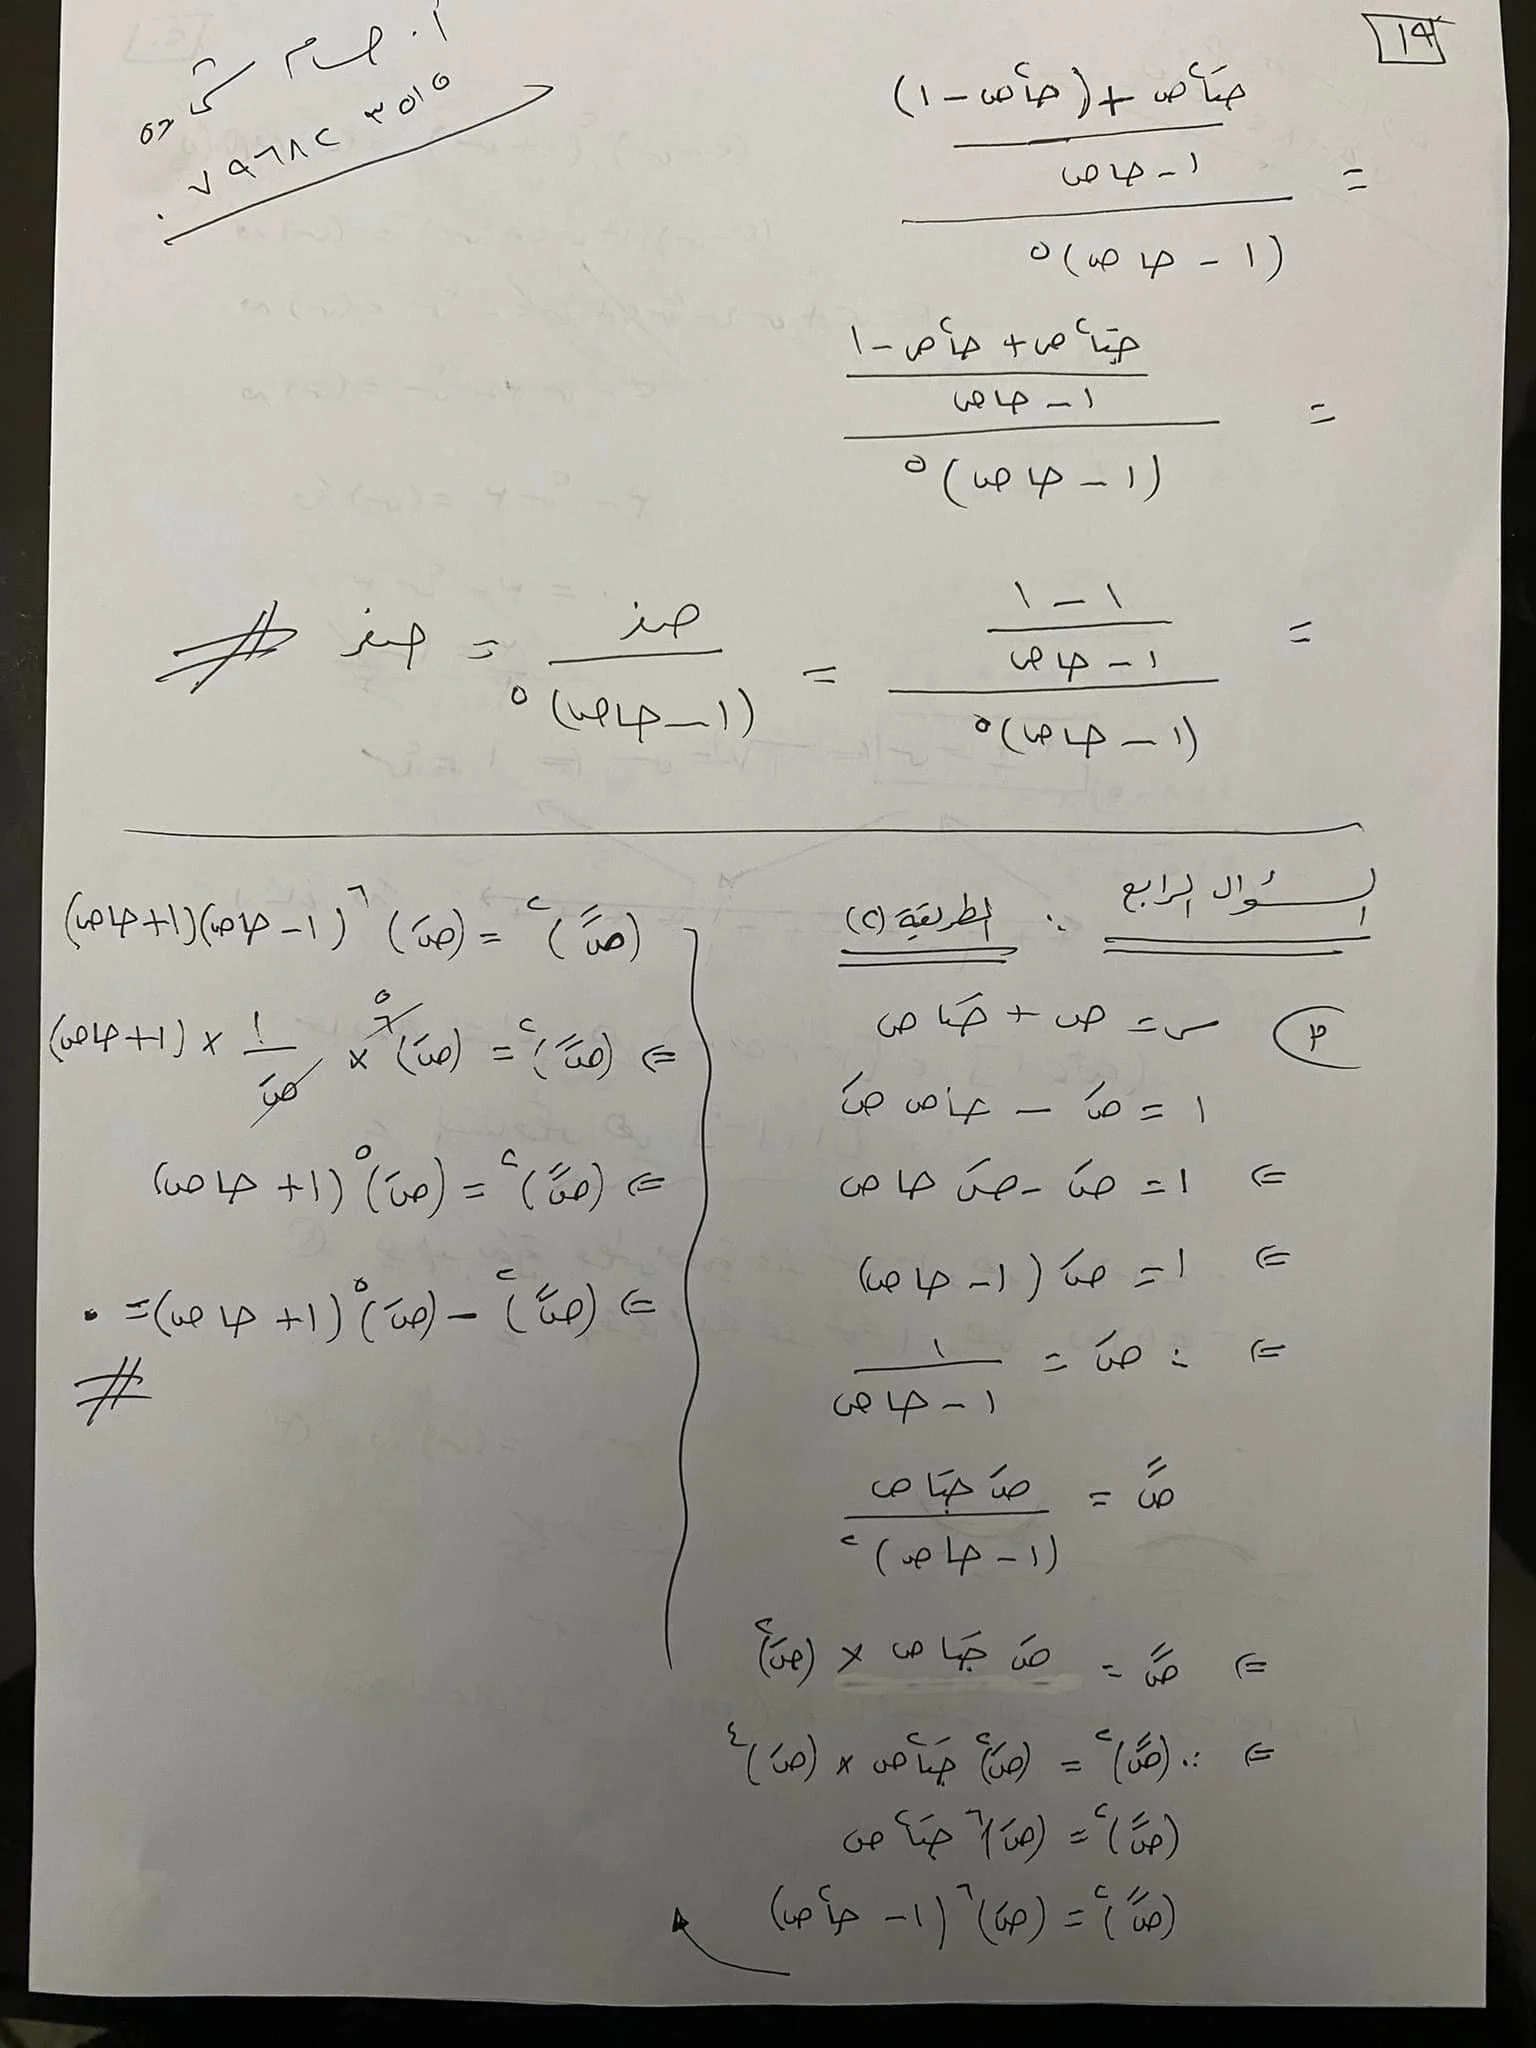 ١٩
أ. حسام شحادة
٠٧٩٦٨٢٣٥١٥
= (جتا٢ص + (جا٢ص - ١)) / (١ - جاص) / (١ - جاص)٥
= (جتا٢ص + جا٢ص - ١) / (١ - جاص) / (١ - جاص)٥
= (١ - ١) / (١ - جاص) / (١ - جاص)٥ = صفر / (١ - جاص)٥ = صفر
السؤال الرابع : الطريقة (٢)
م س = ص + جتا ص
١ = صَ - جاص صَ
⇐ ١ = صَ - صَ جاص
⇐ ١ = صَ (١ - جاص)
⇐ ∴ صَ = ١ / (١ - جاص)
صً = صَ جتاص / (١ - جاص)٢
⇐ صً = صَ جتاص × (صَ)٢
⇐ ∴ (صً)٢ = (صَ)٢ جتا٢ص × (صَ)٤
(صً)٢ = (صَ)٦ جتا٢ص
(صً)٢ = (صَ)٦ (١ - جا٢ص)
(صً)٢ = (صَ)٦ (١ - جاص)(١+جاص)
⇐ (صً)٢ = (صَ)٦ ٥ × ١ / صَ × (١+جاص)
⇐ (صً)٢ = (صَ)٥ (١+ جاص)
⇐ (صً)٢ - (صَ)٥ (١+ جاص) = ٠